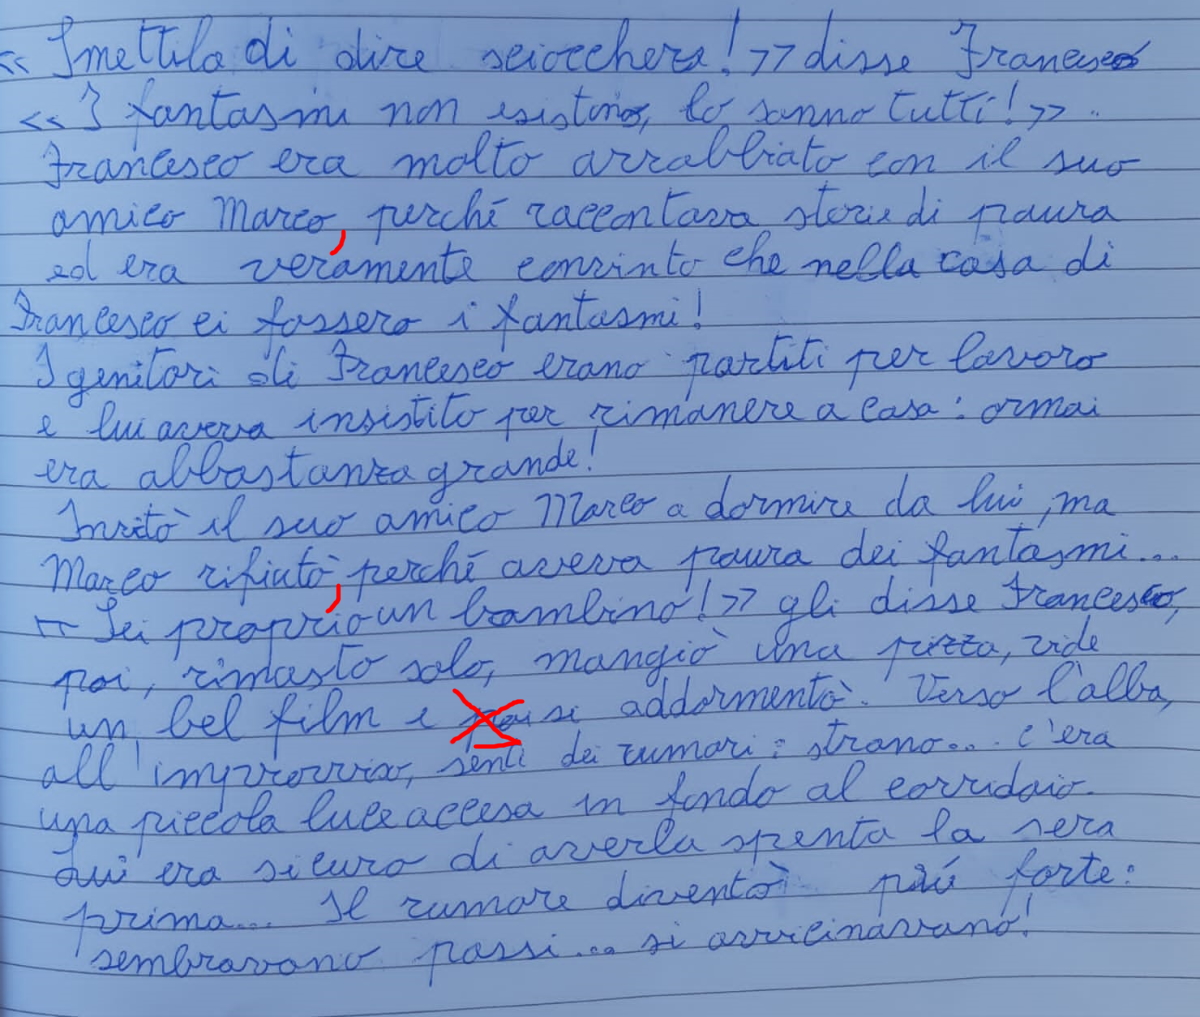 « Smettila di dire sciocchezze!» disse Francesco
«I fantasmi non esistono, lo sanno tutti!».
Francesco era molto arrabbiato con il suo
amico Marco, perché raccontava storie di paura
ed era veramente convinto che nella casa di
Francesco ci fossero i fantasmi!
I genitori di Francesco erano partiti per lavoro
e lui aveva insistito per rimanere a casa: ormai
era abbastanza grande!
Invitò il suo amico Marco a dormire da lui, ma
Marco rifiutò, perché aveva paura dei fantasmi...
«Sei proprio un bambino!» gli disse Francesco,
poi, rimasto solo, mangiò una pizza, vide
un bel film e poi si addormentò. Verso l'alba,
all'improvviso, sentì dei rumori: strano... c'era
una piccola luce accesa in fondo al corridoio.
Lui era sicuro di averla spenta la sera
prima... Il rumore diventò più forte:
sembravano passi... si avvicinavano!